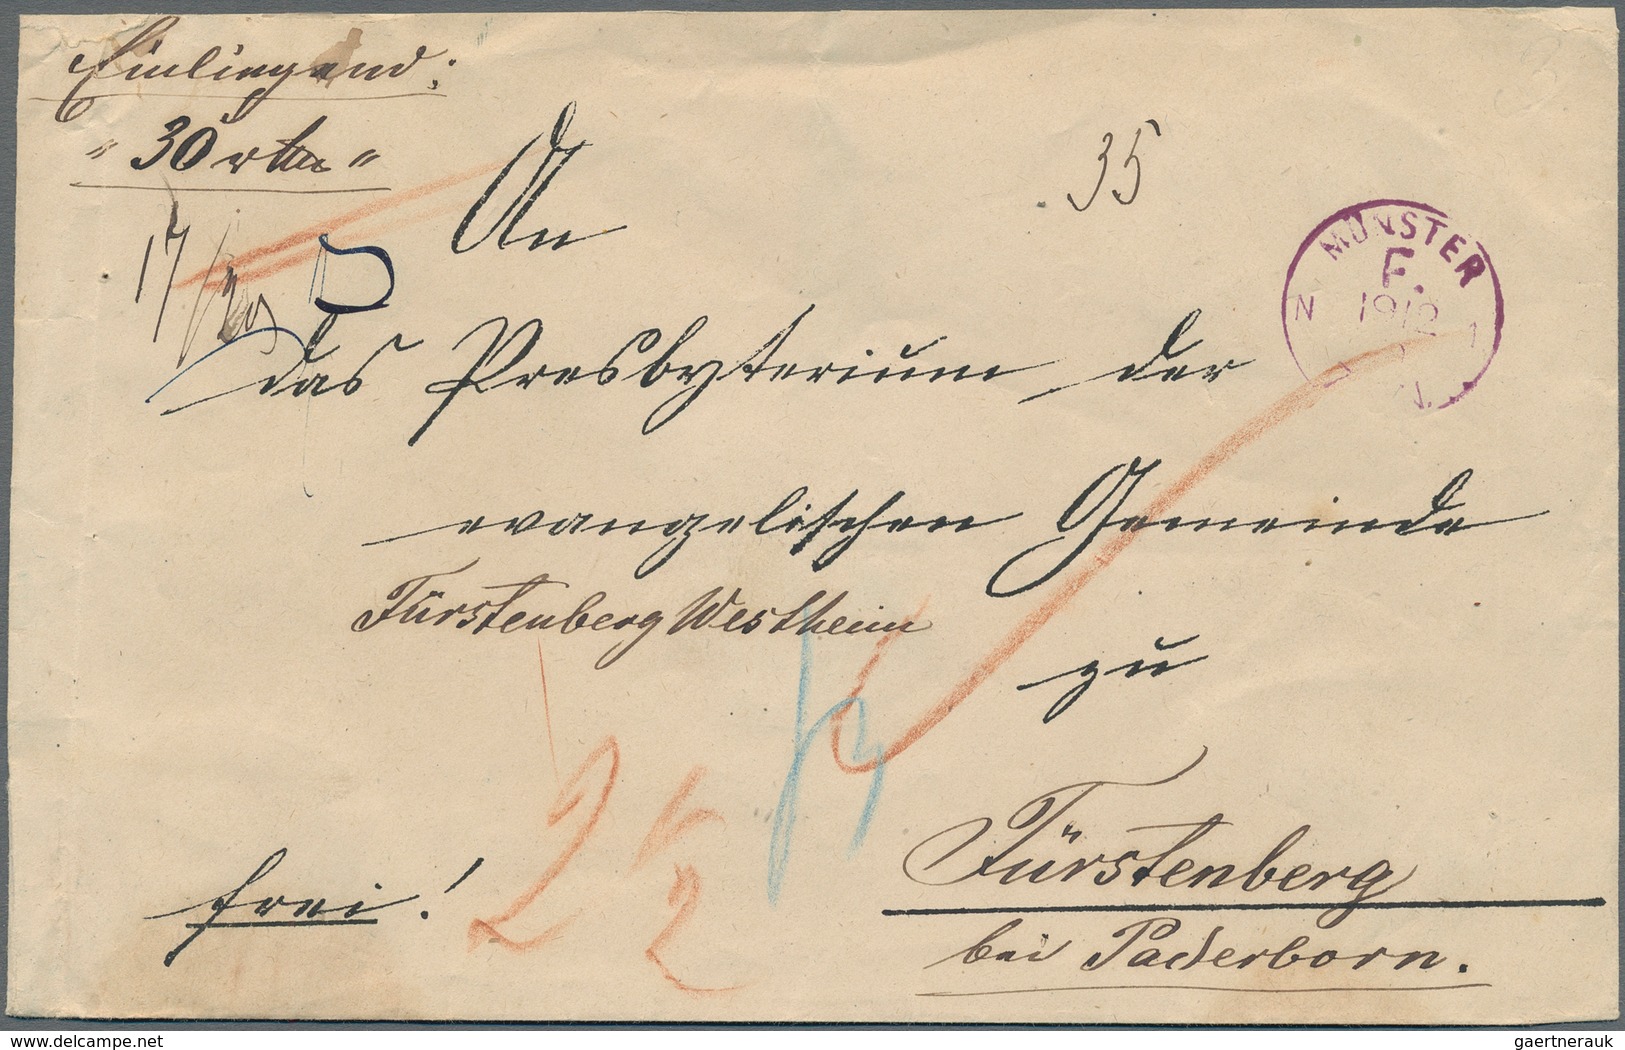 Einliegend:
" 30 rthr "
An
35
MÜNSTER
F.
N 1912 1
das Presbyterium der
evangelischen Gemeinde
Fürstenberg Westheim
zu
2 1/2
Fürstenberg
frei!
bei Paderborn.
delcampe.net
gaertnerauk